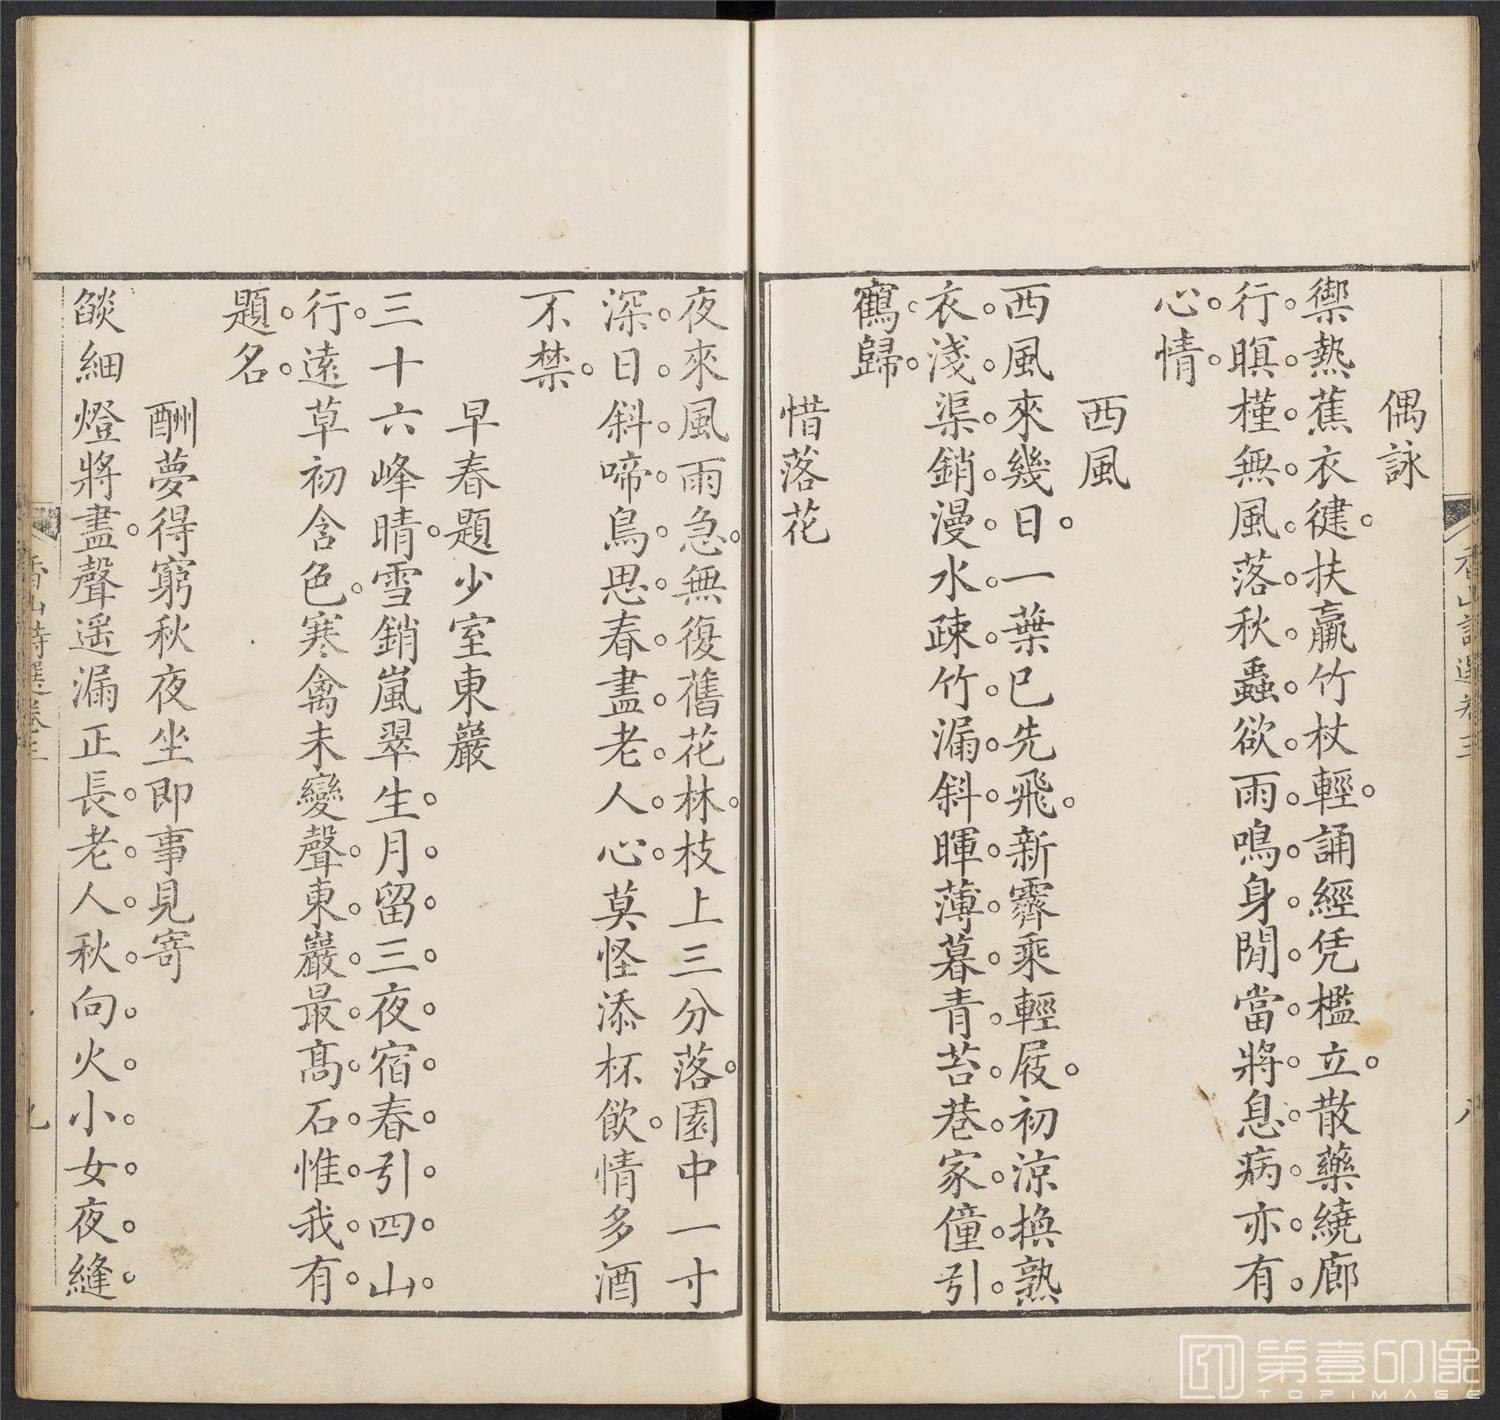 偶詠
禦熱蕉衣健扶羸竹杖輕誦經凭檻立散藥繞廊
行暝槿無風落秋蟲欲雨鳴身閒當將息病亦有
心情
西風
西風來幾日一葉已先飛新霽乘輕屐初涼換熟
衣淺渠銷漫水疎竹漏斜暉薄暮青苔巷家僮引
鶴歸
惜落花
夜來風雨急無復舊花林枝上三分落園中一寸
深日斜啼鳥思春盡老人心莫怪添杯飲情多酒
不禁
早春題少室東巖
三十六峰晴雪銷嵐翠生月留三夜宿春引四山
行遠草初含色寒禽未變聲東巖最高石惟我有
題名
酬夢得窮秋夜坐即事見寄
燄細燈將盡聲遙漏正長老人秋向火小女夜縫
香山詩選卷三
八
香山詩選卷三
九
第壹印像
TOPIMAGE